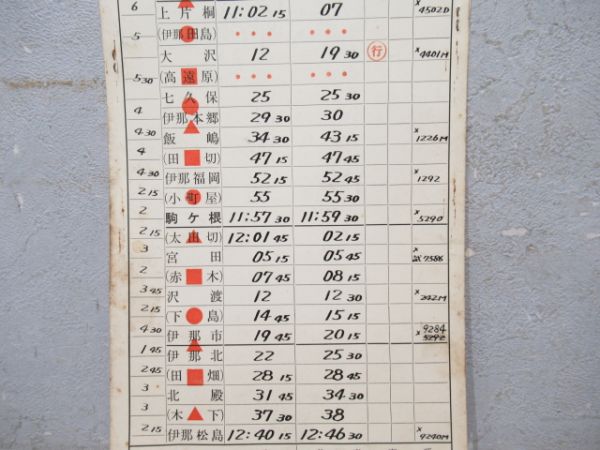 6 上片桐 11:02 15 07 × 4502D
5 (伊那田島) • • • • • •
大沢 12 19 30 行 × 4401M
5 30 (高遠原) • • • • • •
七久保 25 25 30
4 伊那本郷 29 30 30
4 30 飯嶋 34 30 43 15 × 1226M
4 (田切) 47 15 47 45
4 30 伊那福岡 52 15 52 45 × 1292
2 15 (小町屋) 55 55 30
2 駒ケ根 11:57 30 11:59 30 × 5290
2 15 (太田切) 12:01 45 02 15
3 宮田 05 15 05 45 × 試7586
2 (赤木) 07 45 08 15
3 45 沢渡 12 12 30 × 242M
2 15 (下島) 14 45 15 15
4 30 伊那市 19 45 20 15 × 9284 5292
1 45 伊那北 22 25 30
2 45 (田畑) 28 15 28 45
3 北殿 31 45 34 30
3 (木下) 37 30 38
2 15 伊那松島 12:40 15 12:46 30 × 9240M